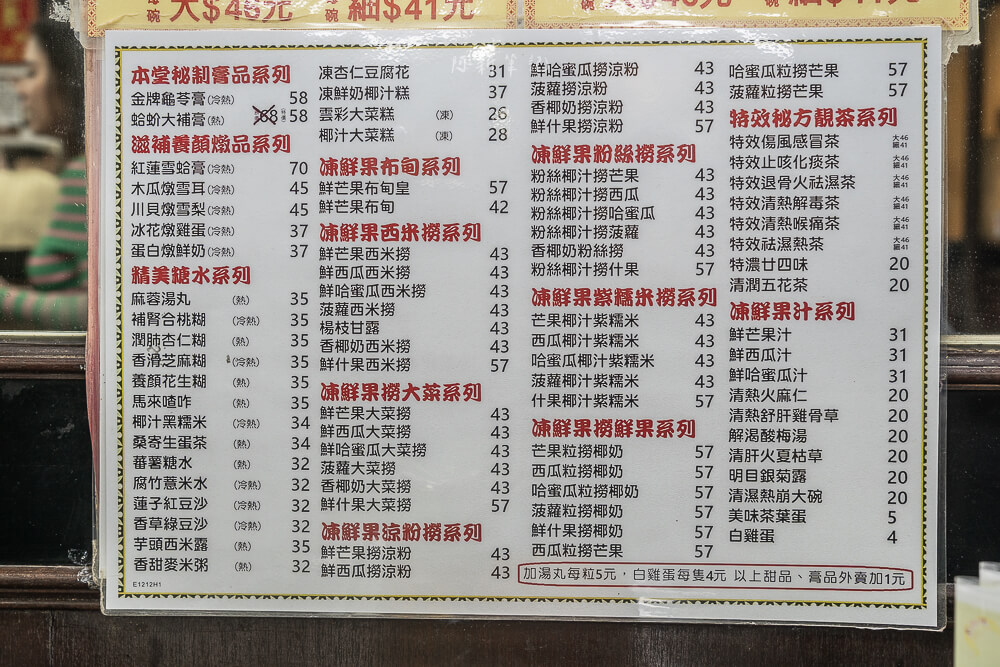 大$46元
細$41元
本堂秘制膏品系列
金牌龜苓膏(冷熱) 58
蛤蚧大補膏(熱) 68 58
滋補養顏燉品系列
紅蓮雪蛤膏(冷熱) 70
木瓜燉雪耳(冷熱) 45
川貝燉雪梨(冷熱) 45
冰花燉雞蛋(冷熱) 37
蛋白燉鮮奶(冷熱) 37
精美糖水系列
麻蓉湯丸 (熱) 35
補腎合桃糊 (冷熱) 35
潤肺杏仁糊 (熱) 35
香滑芝麻糊 (冷熱) 35
養顏花生糊 (熱) 35
馬來喳咋 (熱) 35
椰汁黑糯米 (冷熱) 34
桑寄生蛋茶 (熱) 34
蕃薯糖水 (熱) 32
腐竹薏米水 (冷熱) 32
蓮子紅豆沙 (冷熱) 32
香草綠豆沙 (冷熱) 32
芋頭西米露 (熱) 35
香甜麥米粥 (熱) 32
E1212H1
凍杏仁豆腐花 31
凍鮮奶椰汁糕 37
雲彩大菜糕 (凍) 26
椰汁大菜糕 (凍) 28
凍鮮果布甸系列
鮮芒果布甸皇 57
鮮芒果布甸 42
凍鮮果西米撈系列
鮮芒果西米撈 43
鮮西瓜西米撈 43
鮮哈蜜瓜西米撈 43
菠蘿西米撈 43
楊枝甘露 43
香椰奶西米撈 43
鮮什果西米撈 57
凍鮮果撈大菜系列
鮮芒果大菜撈 43
鮮西瓜大菜撈 43
鮮哈蜜瓜大菜撈 43
菠蘿大菜撈 43
香椰奶大菜撈 43
鮮什果大菜撈 57
凍鮮果涼粉撈系列
鮮芒果撈涼粉 43
鮮西瓜撈涼粉 43
鮮哈蜜瓜撈涼粉 43
菠蘿撈涼粉 43
香椰奶撈涼粉 43
鮮什果撈涼粉 57
凍鮮果粉絲撈系列
粉絲椰汁撈芒果 43
粉絲椰汁撈西瓜 43
粉絲椰汁撈哈蜜瓜 43
粉絲椰汁撈菠蘿 43
香椰奶粉絲撈 43
粉絲椰汁撈什果 57
凍鮮果紫糯米撈系列
芒果椰汁紫糯米 43
西瓜椰汁紫糯米 43
哈蜜瓜椰汁紫糯米 43
菠蘿椰汁紫糯米 43
什果椰汁紫糯米 57
凍鮮果撈鮮果系列
芒果粒撈椰奶 57
西瓜粒撈椰奶 57
哈蜜瓜粒撈椰奶 57
菠蘿粒撈椰奶 57
鮮什果撈椰奶 57
西瓜粒撈芒果 57
哈蜜瓜粒撈芒果 57
菠蘿粒撈芒果 57
特效秘方靚茶系列
特效傷風感冒茶 大46 細41
特效止咳化痰茶 大46 細41
特效退骨火祛濕茶 大46 細41
特效清熱解毒茶 大46 細41
特效清熱喉痛茶 大46 細41
特效祛濕熱茶 大46 細41
特濃廿四味 20
清潤五花茶 20
凍鮮果汁系列
鮮芒果汁 31
鮮西瓜汁 31
鮮哈蜜瓜汁 31
清熱火麻仁 20
清熱舒肝雞骨草 20
解渴酸梅湯 20
清肝火夏枯草 20
明目銀菊露 20
清濕熱崩大碗 20
美味茶葉蛋 5
白雞蛋 4
加湯丸每粒5元，白雞蛋每隻4元 以上甜品、膏品外賣加1元